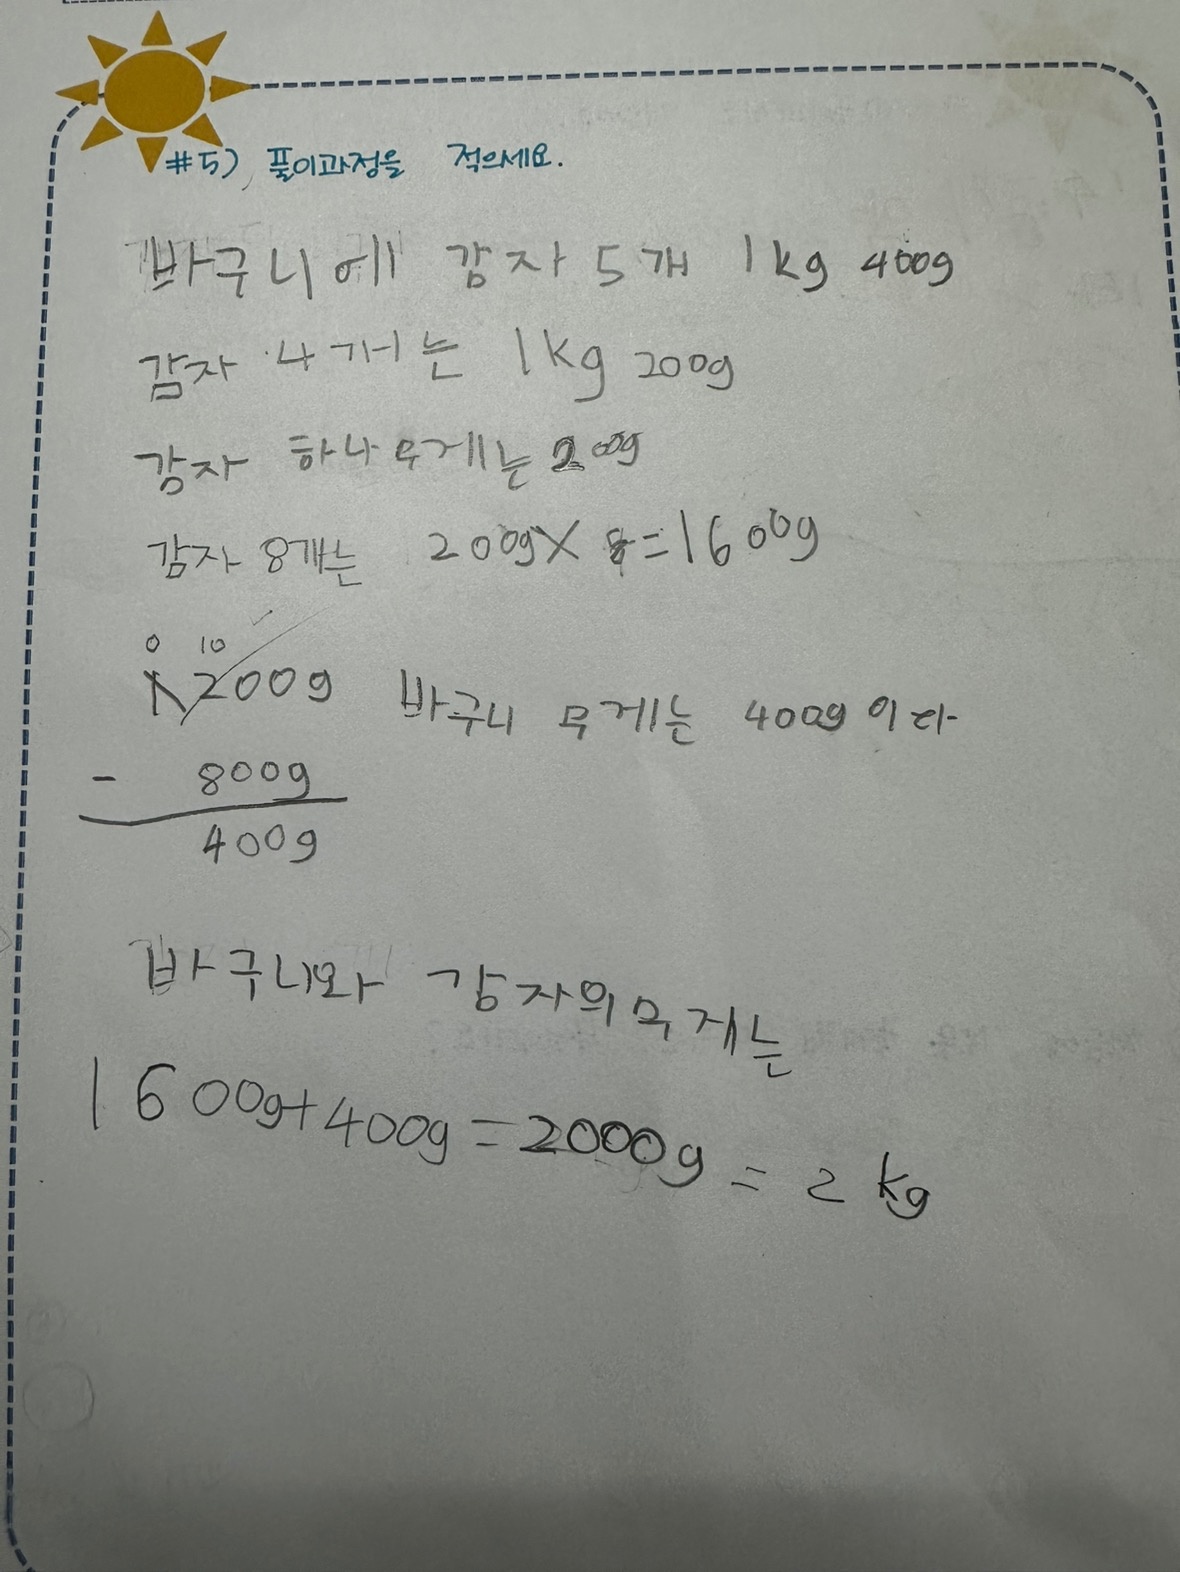 #5) 풀이과정을 적으세요.
바구니에 감자 5개 1kg 400g
감자 4개는 1kg 200g
감자 하나 무게는 200g
감자 8개는 200g×8=1600g
0 10
1200g 바구니 무게는 400g 이다
- 800g
400g
바구니와 감자의 무게는
1600g+400g=2000g = 2 kg